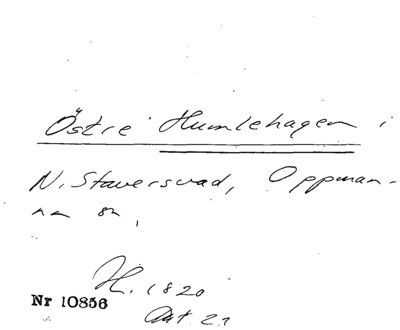 Östre Humlehagen i
N. Staversvad, Oppman-
na sn,
H. 1820
Akt 23
Nr 10856